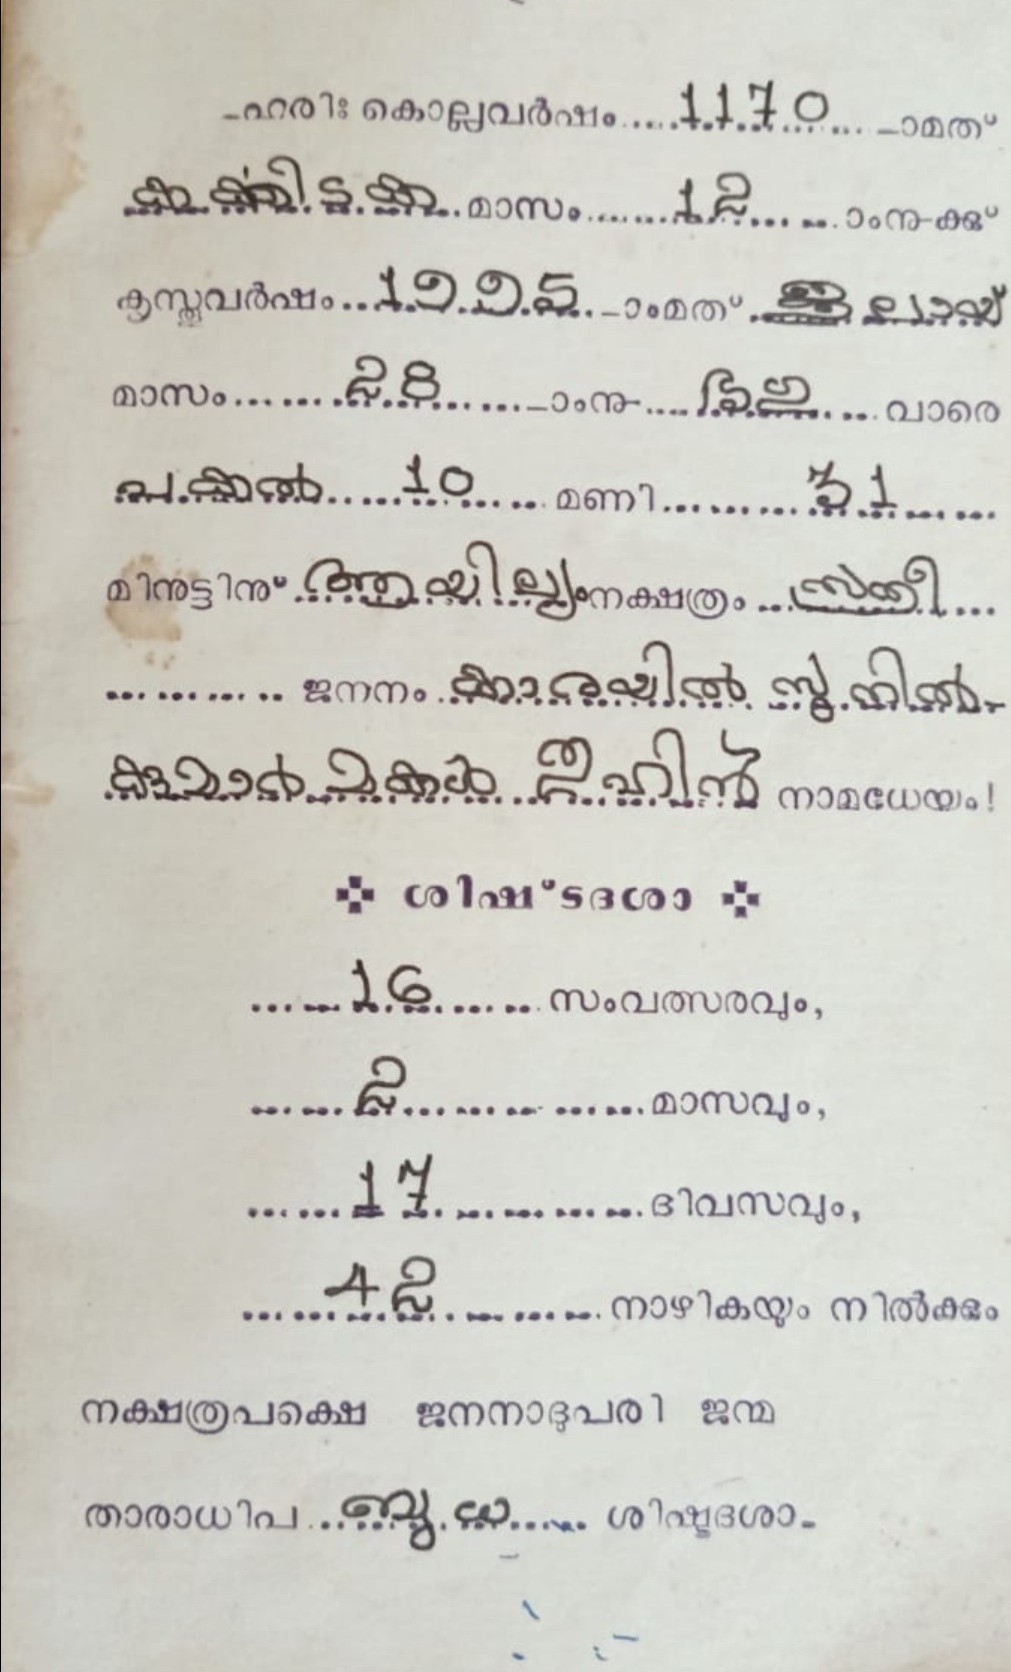 ഹരിഃ കൊല്ലവർഷം....1170....-ാമത്
കർക്കിടക മാസം......12......ാംനു-ക്ക്
കൃസ്തുവർഷം..1995..-ാംമത് ജൂലായ്
മാസം......28......-ാംനു....വാരെ
പകൽ......10......മണി......31......
മിനുട്ടിനു് ആയില്യം നക്ഷത്രം ...സ്ത്രീ...
...........ജനനം കാരയിൽ സുനിൽ-
കുമാർ മകൾ നാമധേയം!
ശിഷ്ടദശാ
......16......സംവത്സരവും,
......2............മാസവും,
......17............ദിവസവും,
......42............നാഴികയും നിൽക്കും
നക്ഷത്രപക്ഷെ ജനനാദുപരി ജന്മ
താരാധിപ...ബുധ......ശിഷ്ടദശാ-